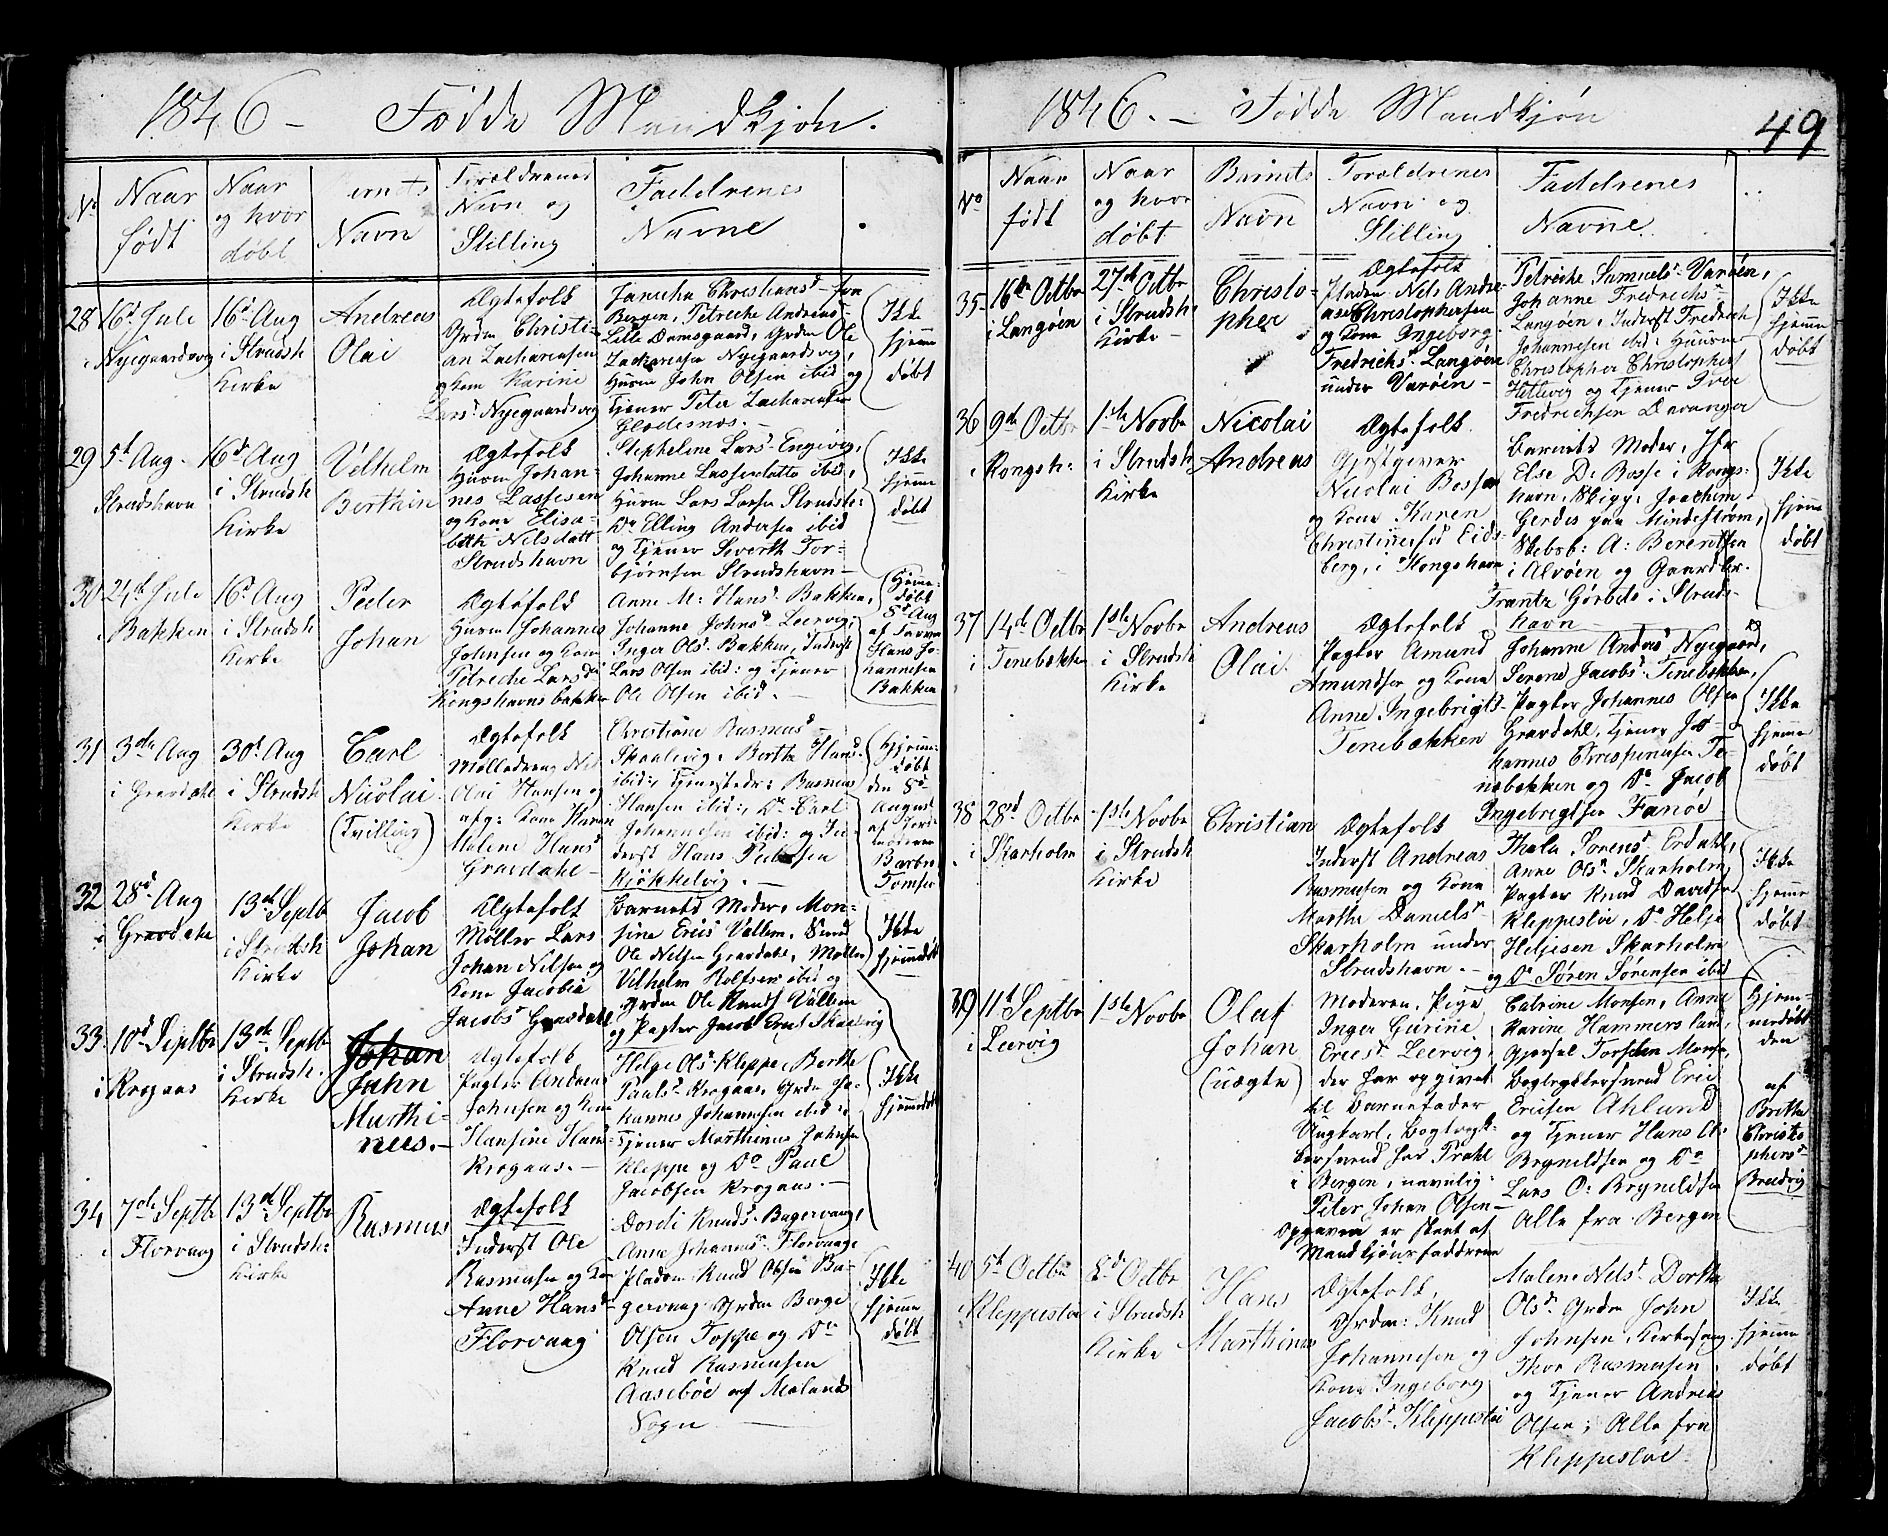 1846 – Fødde Mandkjøn.
No
Naar
født
Naar
og hvor
døbt
Barnets
Navn
Forældrenes
Navn og
Stilling
Faddrenes
Navne
28
16d Juli
i Nyegaardsvog
16d Aug
i Strudsh
Kirke
Andreas
Olai
Ægtefolk
Grdm Christi-
an Zachariasen
og Kone Karine
Lars d Nyegaardsvog
Janicha Christians d fra
Bergen, Petreche Andreas d
Lille Damsgaard, Grdm Ole
Zachariasen Nyegaardsvog,
Huusm John Olsen ibid og
Tjener Peter Zachariasen
Gledesnæs. –
Ikke
hjemme
døbt
29
5t Aug.
Strudshavn
16d Aug
i Strudsh
Kirke
Velhelm
Berthin
Ægtefolk
Huusm Johan-
nes Lassesen
og Kone Elisa-
beth Nelsdatt
Strudshavn
Stepheline Lars d Engevig,
Johanne Lassesdatte ibid,
Huusm Lars Larsen Strudsh:
Do Elling Andersen ibid
og Tjener Siverth Tor-
bjørnsen Strudshavn –
Ikke
hjemme
døbt
30
24d Juli
i Bakken
16d Aug
i Strudsh
Kirke
Peder
Johan
Ægtefolk
Huusm Johannes
Johnsen og Kone
Petreche Lars d
Kongshavns bakken
Anne M: Hans d Bakken,
Johanne Johns d Leervig,
Inger Ols d Bakken, Inderst
Lars Olsen ibid: og Tjener
Ole Olsen ibid. –
Hjemme-
døbt
8d Aug
af Farven
Hans Jo-
hannesen
Bakken
31
3die Aug
i Gravdahl
30d Aug
i Strudsh
Kirke
Carl
Nicolai
(Tvilling)
Ægtefolk
Mølledreng Nels
Olai Hansen og
afg: Kone Karen
Malene Hans d
Gravdahl –
Christiane Rasmus d
Skaalevig, Berthe Hans d
ibid:, Tjenestedr: Rasmus
Hansen ibid:, Do Carl
Johannesen ibid: og In-
derst Hans Pedersen
Kjøkkelvig. –
Hjemme-
døbt
den 8d
August
af Jord-
moderen
Barbra
Tomsen
32
28d Aug
i Gravdahl
13de Septbr
i Strudsh
Kirke
Jacob
Johan
Ægtefolk
Møller Lars
Johan Nelsen og
Kone Jacobia
Jacobs d Gravdahl
Barnets Moder, Mon-
sine Erics Vallem, Smed
Ole Nelsen Gravdahl, Møller
Vilhelm Rolfsen ibid og
Grdm Ole Knuds Vallem
og Pagter Jacob Ericks Skaalevig
Ikke
hjemmedøbt
33
10d Septbr
i Krogaas
13de Septbr
i Strudsh.
Kirke
Johan
John
Marthi-
nus. –
Ægtefolk
Pagter Andreas
Johnsen og Kone
Hansine Hans d
Krogaas. –
Helge Ols d Kleppe, Berthe
Pauls d Krogaas, Grdm Jo-
hannes Johannesen ibid:,
Tjener Marthinus Johnsen
Kleppe og Do Paul
Jacobsen Krogaas. –
Ikke
hjemmedøbt
34
7de Septbr
i Florvaag
13de Septbr
i Strudsh:
Kirke
Rasmus
Ægtefolk
Inderst Ole
Rasmusen og Kone
Anne Hans d
Florvaag
Dordi Knuds d Bagervaag,
Anne Johannes d Florvaage
Pladsm Knud Olsen Ba-
gervaag Grdm Berge
Olsen Toppe og Do
Knud Rasmusen
Aasebøe af Melands
Sogn –
Ikke
hjemme
døbt
1846. – Fødde Mandkjøn
49
No
Naar
født
Naar
og hvor
døbt
Barnets
Navn
Forældrenes
Navn og
Stilling
Faddrenes
Navne.
35
16de Octbr
i Langøen
27de Octbr
i Strudsh
Kirke
Christo-
pher
Ægtefolk
Pladsm: Nels Andre-
as Christophersen
og Kone Ingeborg
Fredrichs d Langøen
under Varøen –
Petreche Samuels d Varøen,
Johanne Fredrichs d
Langøen, Inderst Fredrich
Johannesen ibid: Huusm
Christopher Christophers
Hettevig og Tjener Iver
Fredrichsen Davanger
Ikke
hjemme
døbt
36
9de Octbr
i Kongsh:
1ste Novbr
i Strudsh
Kirke
Nicolai
Andreas
Ægtefolk.
Gjestgiver
Nicolai Bosse
og Kone Karen
Christine, fød Eids-
berg, i Kongshavn
Barnets Moder, Jfr
Else D: Bosse i Kongs-
havn, Joachim
Gerdes paa Mindestrøm,
Skibsb: A: Berentsen
i Alvøen og Gaardbr.
Frantz Görbits i Struds-
havn
Ikke
hjemme
døbt
37
14de Octbr
i Tenebækken
1ste Novbr
i Strudsh
Kirke
Andreas
Olai.
Ægtefolk
Pagter Amund
Amundsen og Kone
Anne Ingebrigts d
Tenebækken
Johanne Andreas d Nyegaard,
Serene Jacobs d Tenebækken,
Pagter Johannes Olsen
Gravdahl, Tjener Jo-
hannes Chrispinusen Te-
nebækken og Do Jacob
Ingebrigtsen Fanøe
Ikke
hjemme
døbt
38
28d Octbr
i Skarholm
1ste Novbr
i Strudsh
Kirke
Christian
Ægtefolk
Inderst Andreas
Rasmusen og Kone
Marthe Daniels d
Skarholm under
Strudshavn. –
Thale Sørens d Erdahl,
Anne Ols d Skarholm,
Pagter Knud Davidsen
Kleppestøe, Do Helje
Heljesen Skarholm
og Do Søren Sørensen ibid
Ikke
hjemme
døbt
39
11te Septbr
i Leervig
1ste Novbr
Olaf
Johan
(uægte)
Moderen, Pige
Inger Gurine
Erics d Leervig,
der har opgivet
til Barnefader
Ungkarl, Bogtryk-
kersvend hos Prahl
i Bergen, navnlig:
Peter Johan Olsen –
Opgaven er skeet af
Mandkjønsfadderne
Catrine Monsen, Anne
Karine Hammersland,
Gjørsel Torsten Monsen,
Bogtrykkersvend Eric
Ericsen Ahlund
og Tjener Hans O:
Brynildsen og Do
Lars O: Brynildsen
Alle fra Bergen
Hjem-
medøbt
den
af
Brithe
Christo-
phers d
Bredvig
40
5t Octbr
i Kleppestøe
8d Octbr
i Strudsh
Kirke
Hans
Marthinus
Ægtefolk,
Grdm: Knud
Johannesen og
Kone Ingeborg
Jacobs d Kleppestøe
Malene Nels d Dorthe
Ols d Grdm John
Johnsen Kirkesang:
Thor Rasmusen
og Tjener Andreas
Olsen; Alle fra
Kleppestøe.
Ikke
hjemme
døbt